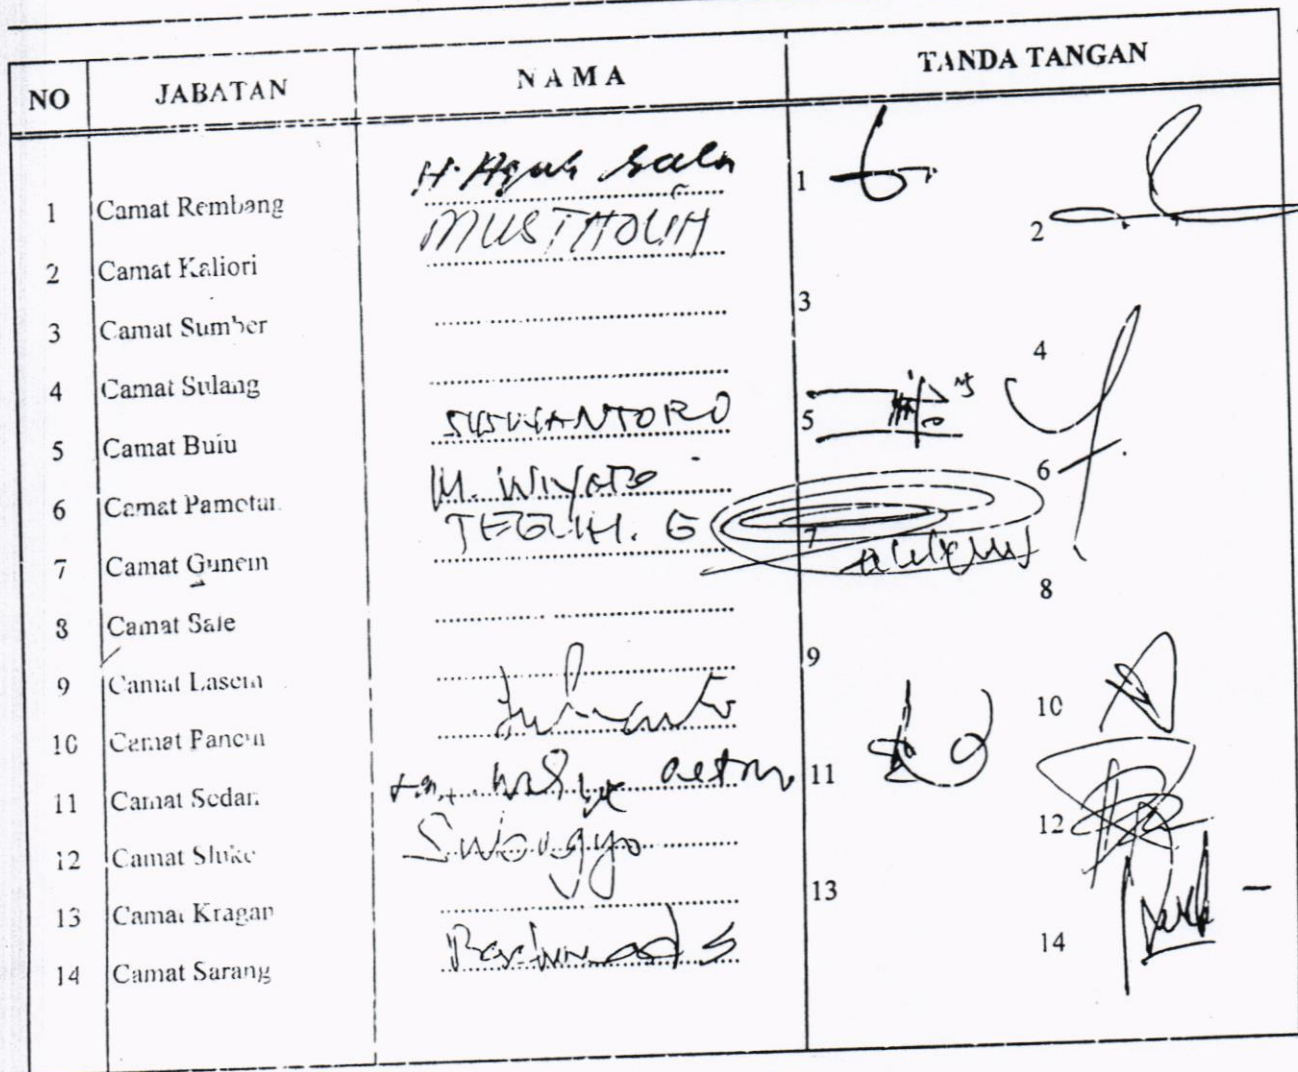 NO JABATAN NAMA TANDA TANGAN
1 Camat Rembang H. Agus Salim 1
2 Camat Kaliori MUSTHOLIH 2
3 Camat Sumber 3
4 Camat Sulang 4
5 Camat Bulu SUSWANTORO 5
6 Camat Pamotan M. WIYOTO 6
7 Camat Gunem TEGUH. G 7
8 Camat Sale 8
9 Camat Lasem 9
10 Camat Pancur 10
11 Camat Sedan 11
12 Camat Sluke 12
13 Camat Kragan 13
14 Camat Sarang 14